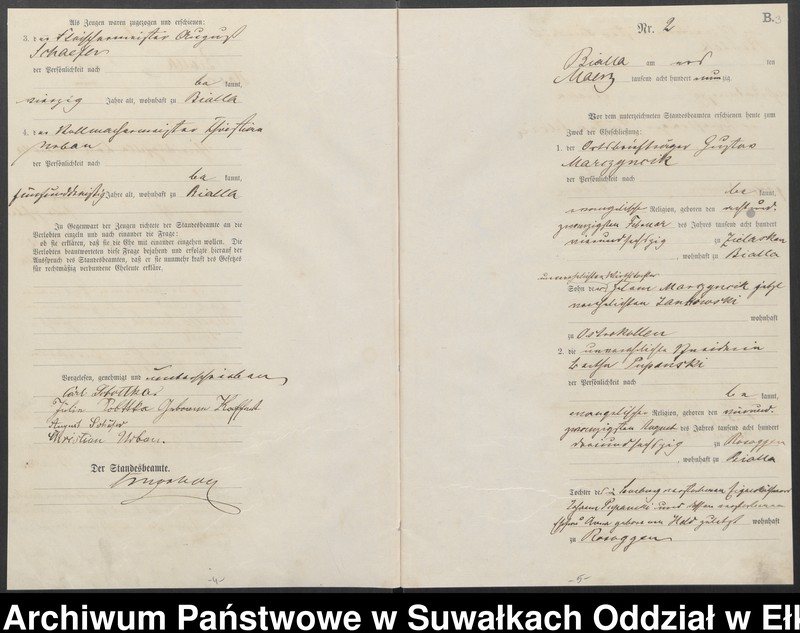 Als Zeugen waren zugezogen und erschienen:
3. der Fleischermeister August
Schaefer
der Persönlichkeit nach
be kannt,
vierzig Jahre alt, wohnhaft zu Bialla
4. der Stellmachermeister Christian
Urban
der Persönlichkeit nach
be kannt,
fünfunddreißig Jahre alt, wohnhaft zu Bialla
In Gegenwart der Zeugen richtete der Standesbeamte an die
Verlobten einzeln und nach einander die Frage:
ob sie erklären, daß sie die Ehe mit einander eingehen wollen. Die
Verlobten beantworteten diese Frage bejahend und erfolgte hierauf der
Ausspruch des Standesbeamten, daß er sie nunmehr kraft des Gesetzes
für rechtmäßig verbundene Eheleute erkläre.
Vorgelesen, genehmigt und unterschrieben
Carl Sbottka
Julie Geborene
August Schäfer
Christian Urban.
Der Standesbeamte.
-4-
B.
3
Nr. 2
Bialla am ten
Maerz tausend acht hundert neunzig
Vor dem unterzeichneten Standesbeamten erschienen heute zum
Zweck der Eheschließung:
1. der Ortsbriefträger Gustav
Marczyncik
der Persönlichkeit nach
be kannt,
evangelischer Religion, geboren den acht und
zwanzigsten Februar des Jahres tausend acht hundert
vierundsechszig zu
, wohnhaft zu Bialla
unverehelichten
Sohn der Marczyncik jetzt
verehelichten Jankowski
wohnhaft
zu Ostrokollen
2. die unverehelichte Schneiderin
Bertha Pupanski
der Persönlichkeit nach
be kannt,
evangelischer Religion, geboren den vierund-
zwanzigsten August des Jahres tausend acht hundert
dreiundsechszig zu Rosoggen
, wohnhaft zu Bialla
Tochter des zu verstorbenen Eigenkäthner
Johann Pupanski und dessen verstorbenen
Ehefrau Anna geborenen Held zuletzt wohnhaft
zu Rosoggen
-5-
Archiwum Państwowe w Suwałkach Oddział w Ełk